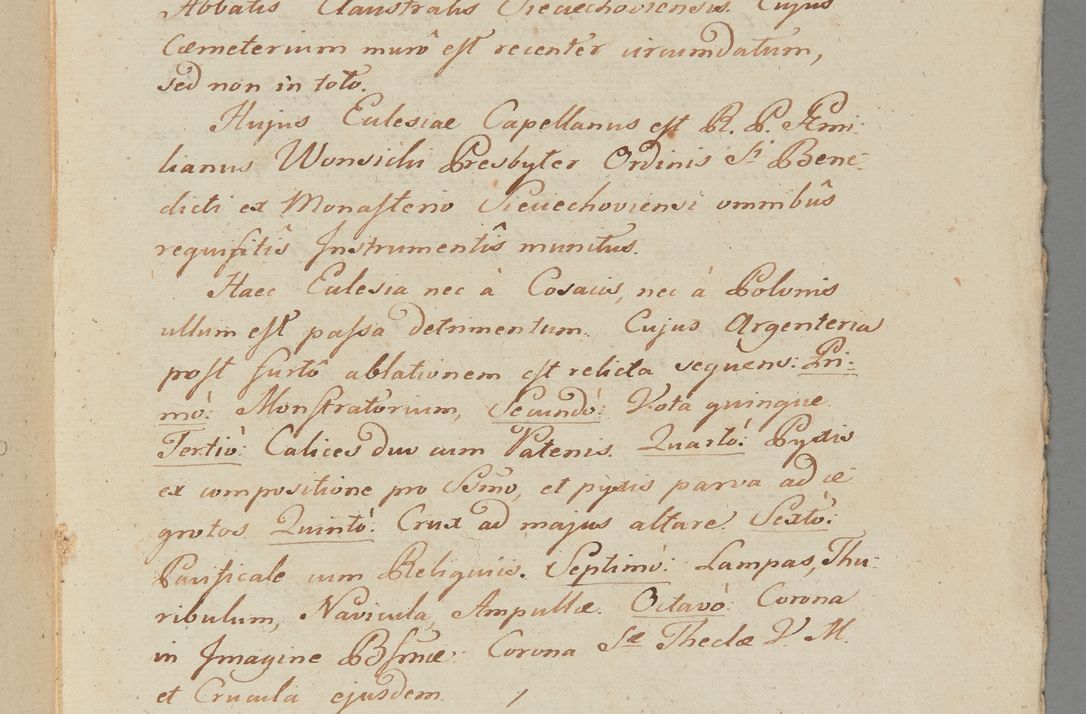 Abbatis Claustralis Sieciechoviensis. Cujus
Cæmeterium murô est recenter circumdatum,
sed non in toto.
Hujus Ecclesiae Capellanus est R. P. Æmi-
lianus Wonsicki Presbyter Ordinis Sti Bene-
dicti ex Monasterio Sieciechoviensi omnibûs
requisitîs Instrumentîs munitus.
Haec Ecclesia nec à Cosacis, nec à Polonis
ullum est passa detrimentum. Cujus Argenteria
post furtô ablationem est relicta sequens: Pri-
mò: Monstratorium, Secundò: Vota quinque
Tertiò: Calices duo cum Patenis. Quartò: Pyxis
ex compositione pro Ssmo, et pyxis parva ad æ
grotos Quintò: Crux ad majus altare. Sextò:
Pacificale cum Reliquiis. Septimò: Lampas, Thu-
ribulum, Navicula, Ampullæ. Octavò: Corona
in Imagine BVsmæ: Corona Sæ Theclæ V. M.
et Crucula ejusdem.